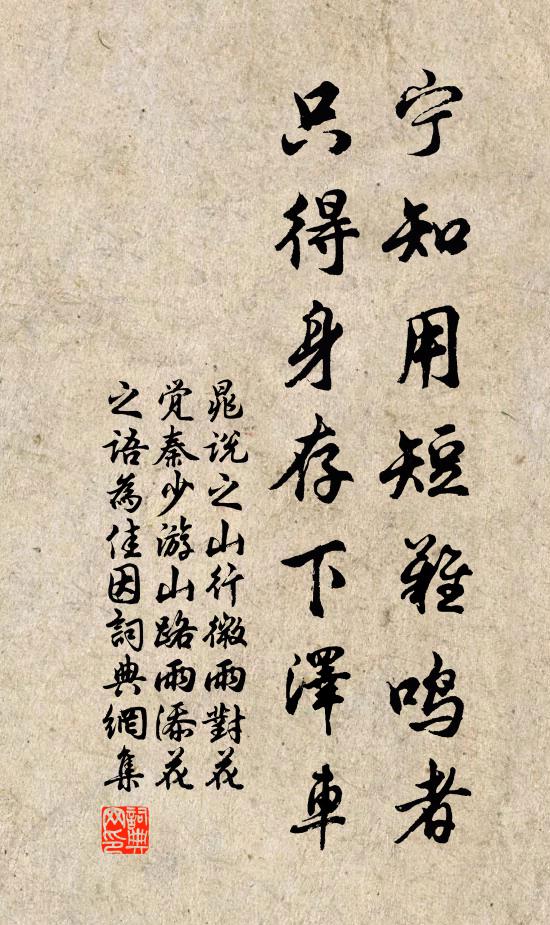 宁知用短難鸣者
只得身存下澤車
晁说之山行微雨對花
觉秦少游山路雨添花
之语為佳因詞典網集
詞典
网印